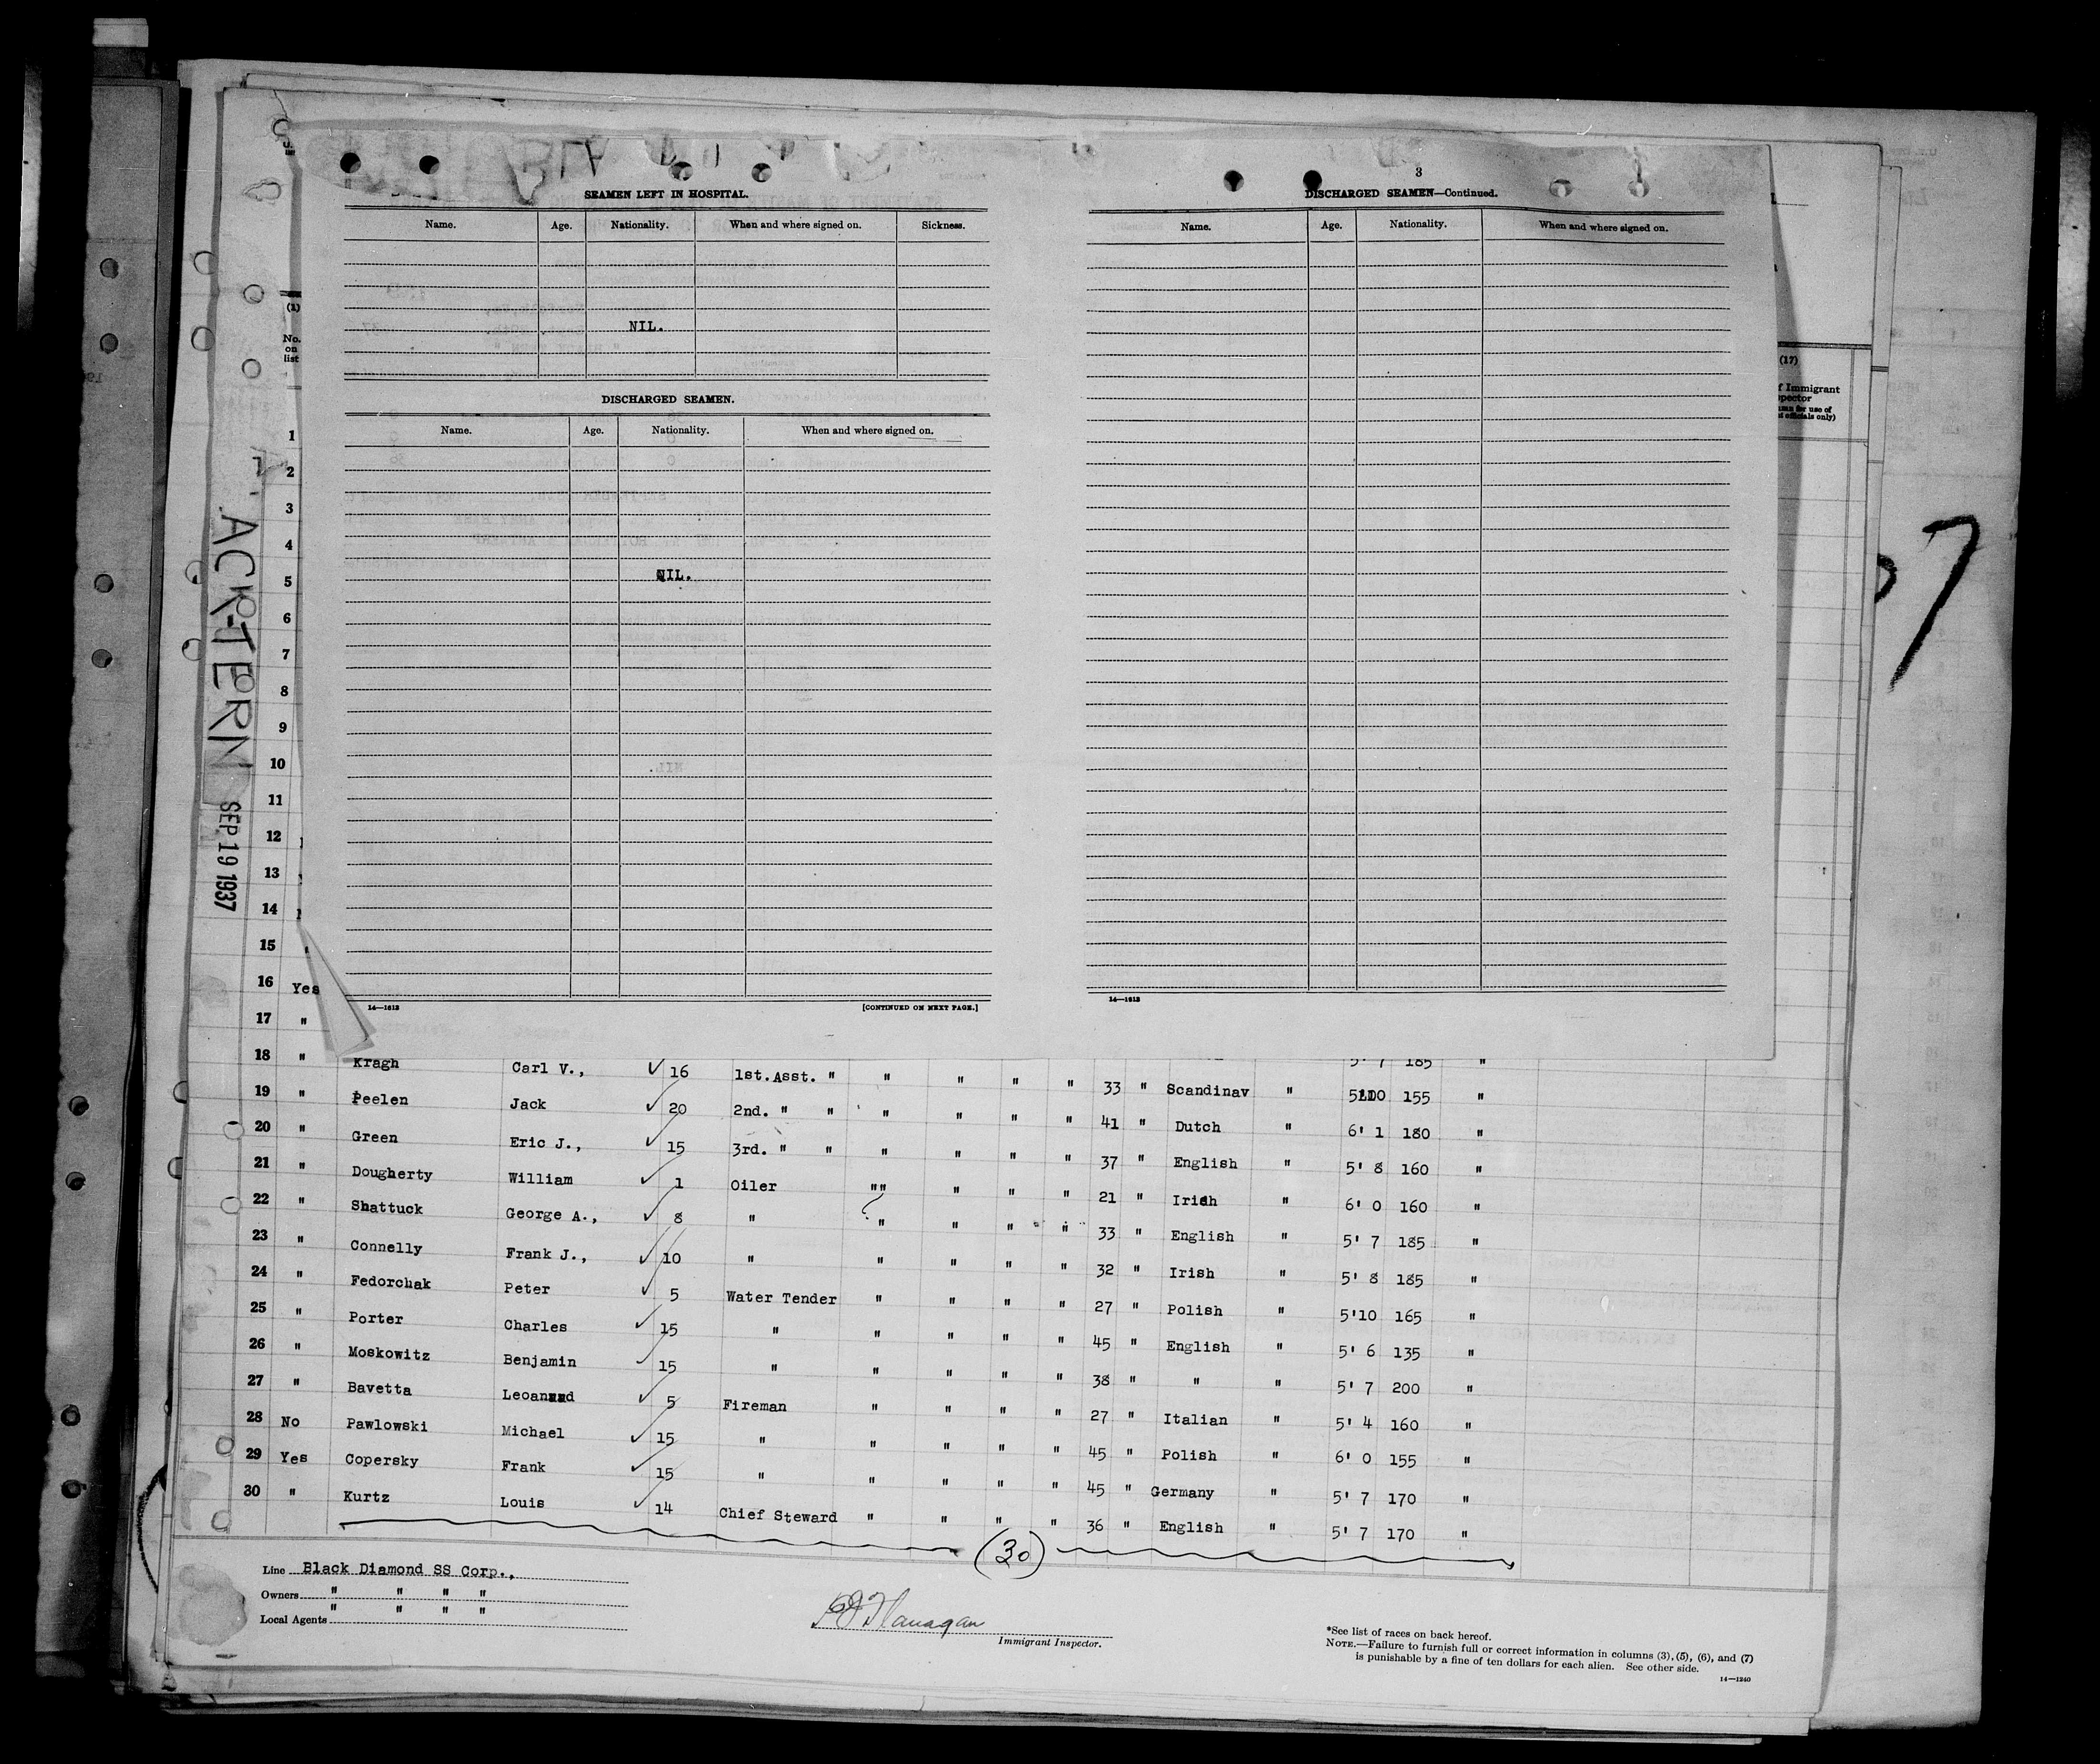 3
SEAMEN LEFT IN HOSPITAL.
Name. Age. Nationality. When and where signed on. Sickness.
NIL.
DISCHARGED SEAMEN.
Name. Age. Nationality. When and where signed on.
NIL.
14—1613 [CONTINUED ON NEXT PAGE.]
DISCHARGED SEAMEN—Continued.
Name. Age. Nationality. When and where signed on.
14—1613
(1)
No. on list
(17)
f Immigrant
pector
officials only)
ACK-TERN
SEP 19 1937
7
1
2
3
4
5
6
7
8
9
10
11
12
13
14
15
16 Yes
17 "
18 " Kragh Carl V., ✓ 16 1st.Asst. " " " " " 33 " Scandinav " 5' 7 185 "
19 " Peelen Jack ✓ 20 2nd. " " " " " " 41 " Dutch " 155 "
20 " Green Eric J., ✓ 15 3rd. " " " " " " 37 " English " 6' 1 180 "
21 " Dougherty William ✓ 1 Oiler "" " " " 21 " Irish " 5' 8 160 "
22 " Shattuck George A., ✓ 8 " " " " " 33 " English " 6' 0 160 "
23 " Connelly Frank J., ✓ 10 " " " " " 32 " Irish " 5' 7 185 "
24 " Fedorchak Peter ✓ 5 Water Tender " " " " 27 " Polish " 5' 8 185 "
25 " Porter Charles ✓ 15 " " " " " 45 " English " 5'10 165 "
26 " Moskowitz Benjamin ✓ 15 " " " " " 38 " " " 5' 6 135 "
27 " Bavetta ✓ 5 Fireman " " " " 27 " Italian " 5' 7 200 "
28 No Pawlowski Michael ✓ 15 " " " " " 45 " Polish " 5' 4 160 "
29 Yes Copersky Frank ✓ 15 " " " " " 45 " Germany " 6' 0 155 "
30 " Kurtz Louis ✓ 14 Chief Steward " " " " 36 " English " 5' 7 170 "
5' 7 170 "
(30)
Line Black Diamond SS Corp.,
Owners " " " "
Local Agents " " " "
Flanagan
Immigrant Inspector.
*See list of races on back hereof.
NOTE.—Failure to furnish full or correct information in columns (3), (5), (6), and (7)
is punishable by a fine of ten dollars for each alien. See other side.
14—1240